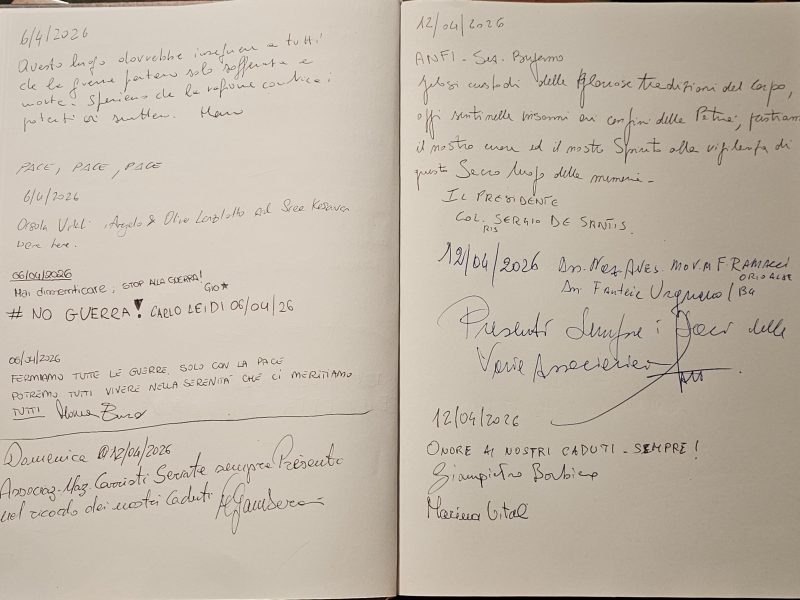 6/4/2026
Questo luogo dovrebbe insegnare a tutti
che la guerra portano solo sofferenza e
morte. Speriamo che la ragione
potenti si
PACE, PACE, PACE
6/4/2026
Orsola Angelo & Oliva and Sree
were here.
06/04/2026
Mai dimenticare, STOP ALLA GUERRA!
Gio★
# NO GUERRA! CARLO LEIDI 06/04/26
06/04/2026
FERMIAMO TUTTE LE GUERRE. SOLO CON LA PACE
POTREMO TUTTI VIVERE NELLA SERENITÀ CHE CI MERITIAMO
TUTTI
Domenica 12/04/2026
Associaz. Naz. Carristi Seriate sempre Presente
nel ricordo dei nostri Caduti
12/04/2026
ANFI - Sez.
Gelosi custodi delle Gloriose tradizioni del Corpo,
oggi sentinelle insonni ai confini della Patria,
il nostro cuore ed il nostro Spirito alla vigilanza di
questo Sacro luogo della memoria.
IL PRESIDENTE
COL. RIS SERGIO DE SANTIS.
12/04/2026 Ass. Naz. AVES. MOV. M F. RAMACCI
ORIO AL SE
Ass. Fanteria Urgnano / BG
Presenti Sempre i Soci delle
Varie Associazioni
12/04/2026
ONORE AI NOSTRI CADUTI - SEMPRE!
Giampietro
Marina Vitali